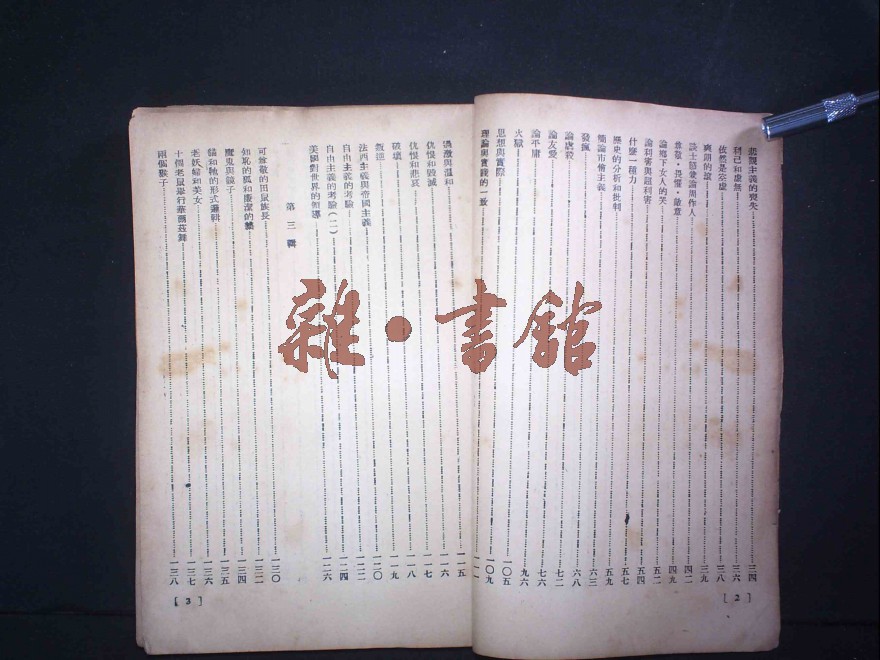 悲觀主義的喪失 三四
利己和虛無 三六
依然是空虛 三八
爽朗的 三九
談士 愛論周作人 四二
尊敬・畏懼・敵意 四九
論鄉下女人的哭 五二
論利害與超利害 五四
什麼一種力 五七
歷史的分析和批判 五九
市儈主義 六三
發瘋 六八
論虛 七二
論友愛 七六
論平庸 九六
火獄 一〇五
思想與實際 一〇九
理論與實踐的一致 一一一
[2]
過激與溫和 一一五
仇恨和毀滅 一一六
仇恨和悲哀 一一七
破壞 一一八
叛逆 一一九
法西主義與帝國主義 一二〇
自由主義的考驗 一二二
自由主義的考驗（二） 一二四
美國對世界的領導 一二六
第三輯
可尊敬的田鼠族長 一三〇
知恥的狐和廉潔的 一三二
魔鬼與鏡子 一三四
貓和牠的形式邏輯 一三五
老妖婦和美女 一三六
十個老鼠舉行華爾茲舞 一三七
兩個猴子 一三八
[3]
雜・書館